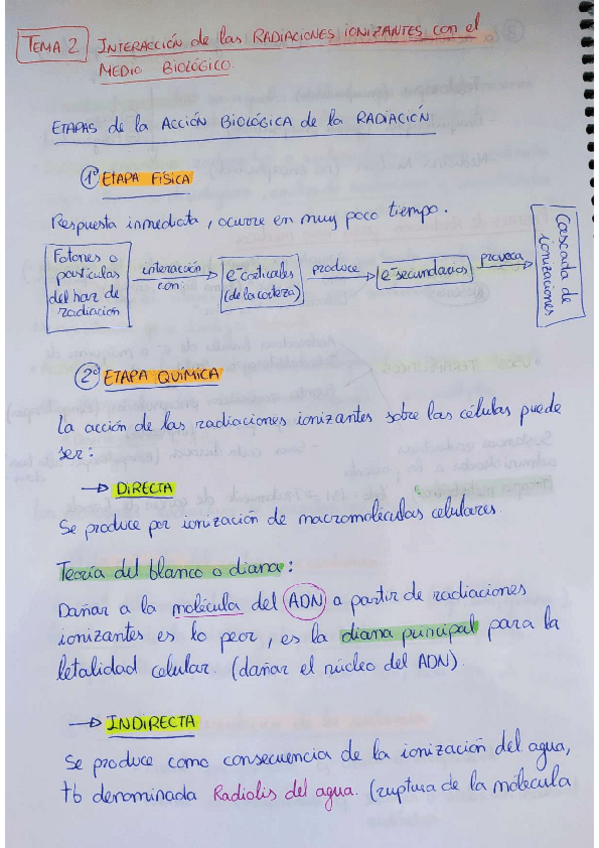 TEMA 2 INTERACCIÓN de las RADIACIONES IONIZANTES con el
MEDIO BIOLÓGICO.
ETAPAS de la ACCIÓN BIOLÓGICA de la RADIACIÓN
1º ETAPA FÍSICA
Respuesta inmediata, ocurre en muy poco tiempo.
Fotones o
partículas
del haz de
radiación
interacción
con:
e⁻ corticales
(de la corteza)
produce
e⁻ secundarios
provoca
Cascada de
ionizaciones
2º ETAPA QUÍMICA
La acción de las radiaciones ionizantes sobre las células puede
ser:
→ DIRECTA
Se produce por ionización de macromoléculas celulares.
Teoría del blanco o diana:
Dañar a la molécula del ADN a partir de radiaciones
ionizantes es lo peor, es la diana principal para la
letalidad celular. (dañar el núcleo del ADN).
→ INDIRECTA
Se produce como consecuencia de la ionización del agua,
tb denominada Radiolis del agua. (ruptura de la molécula